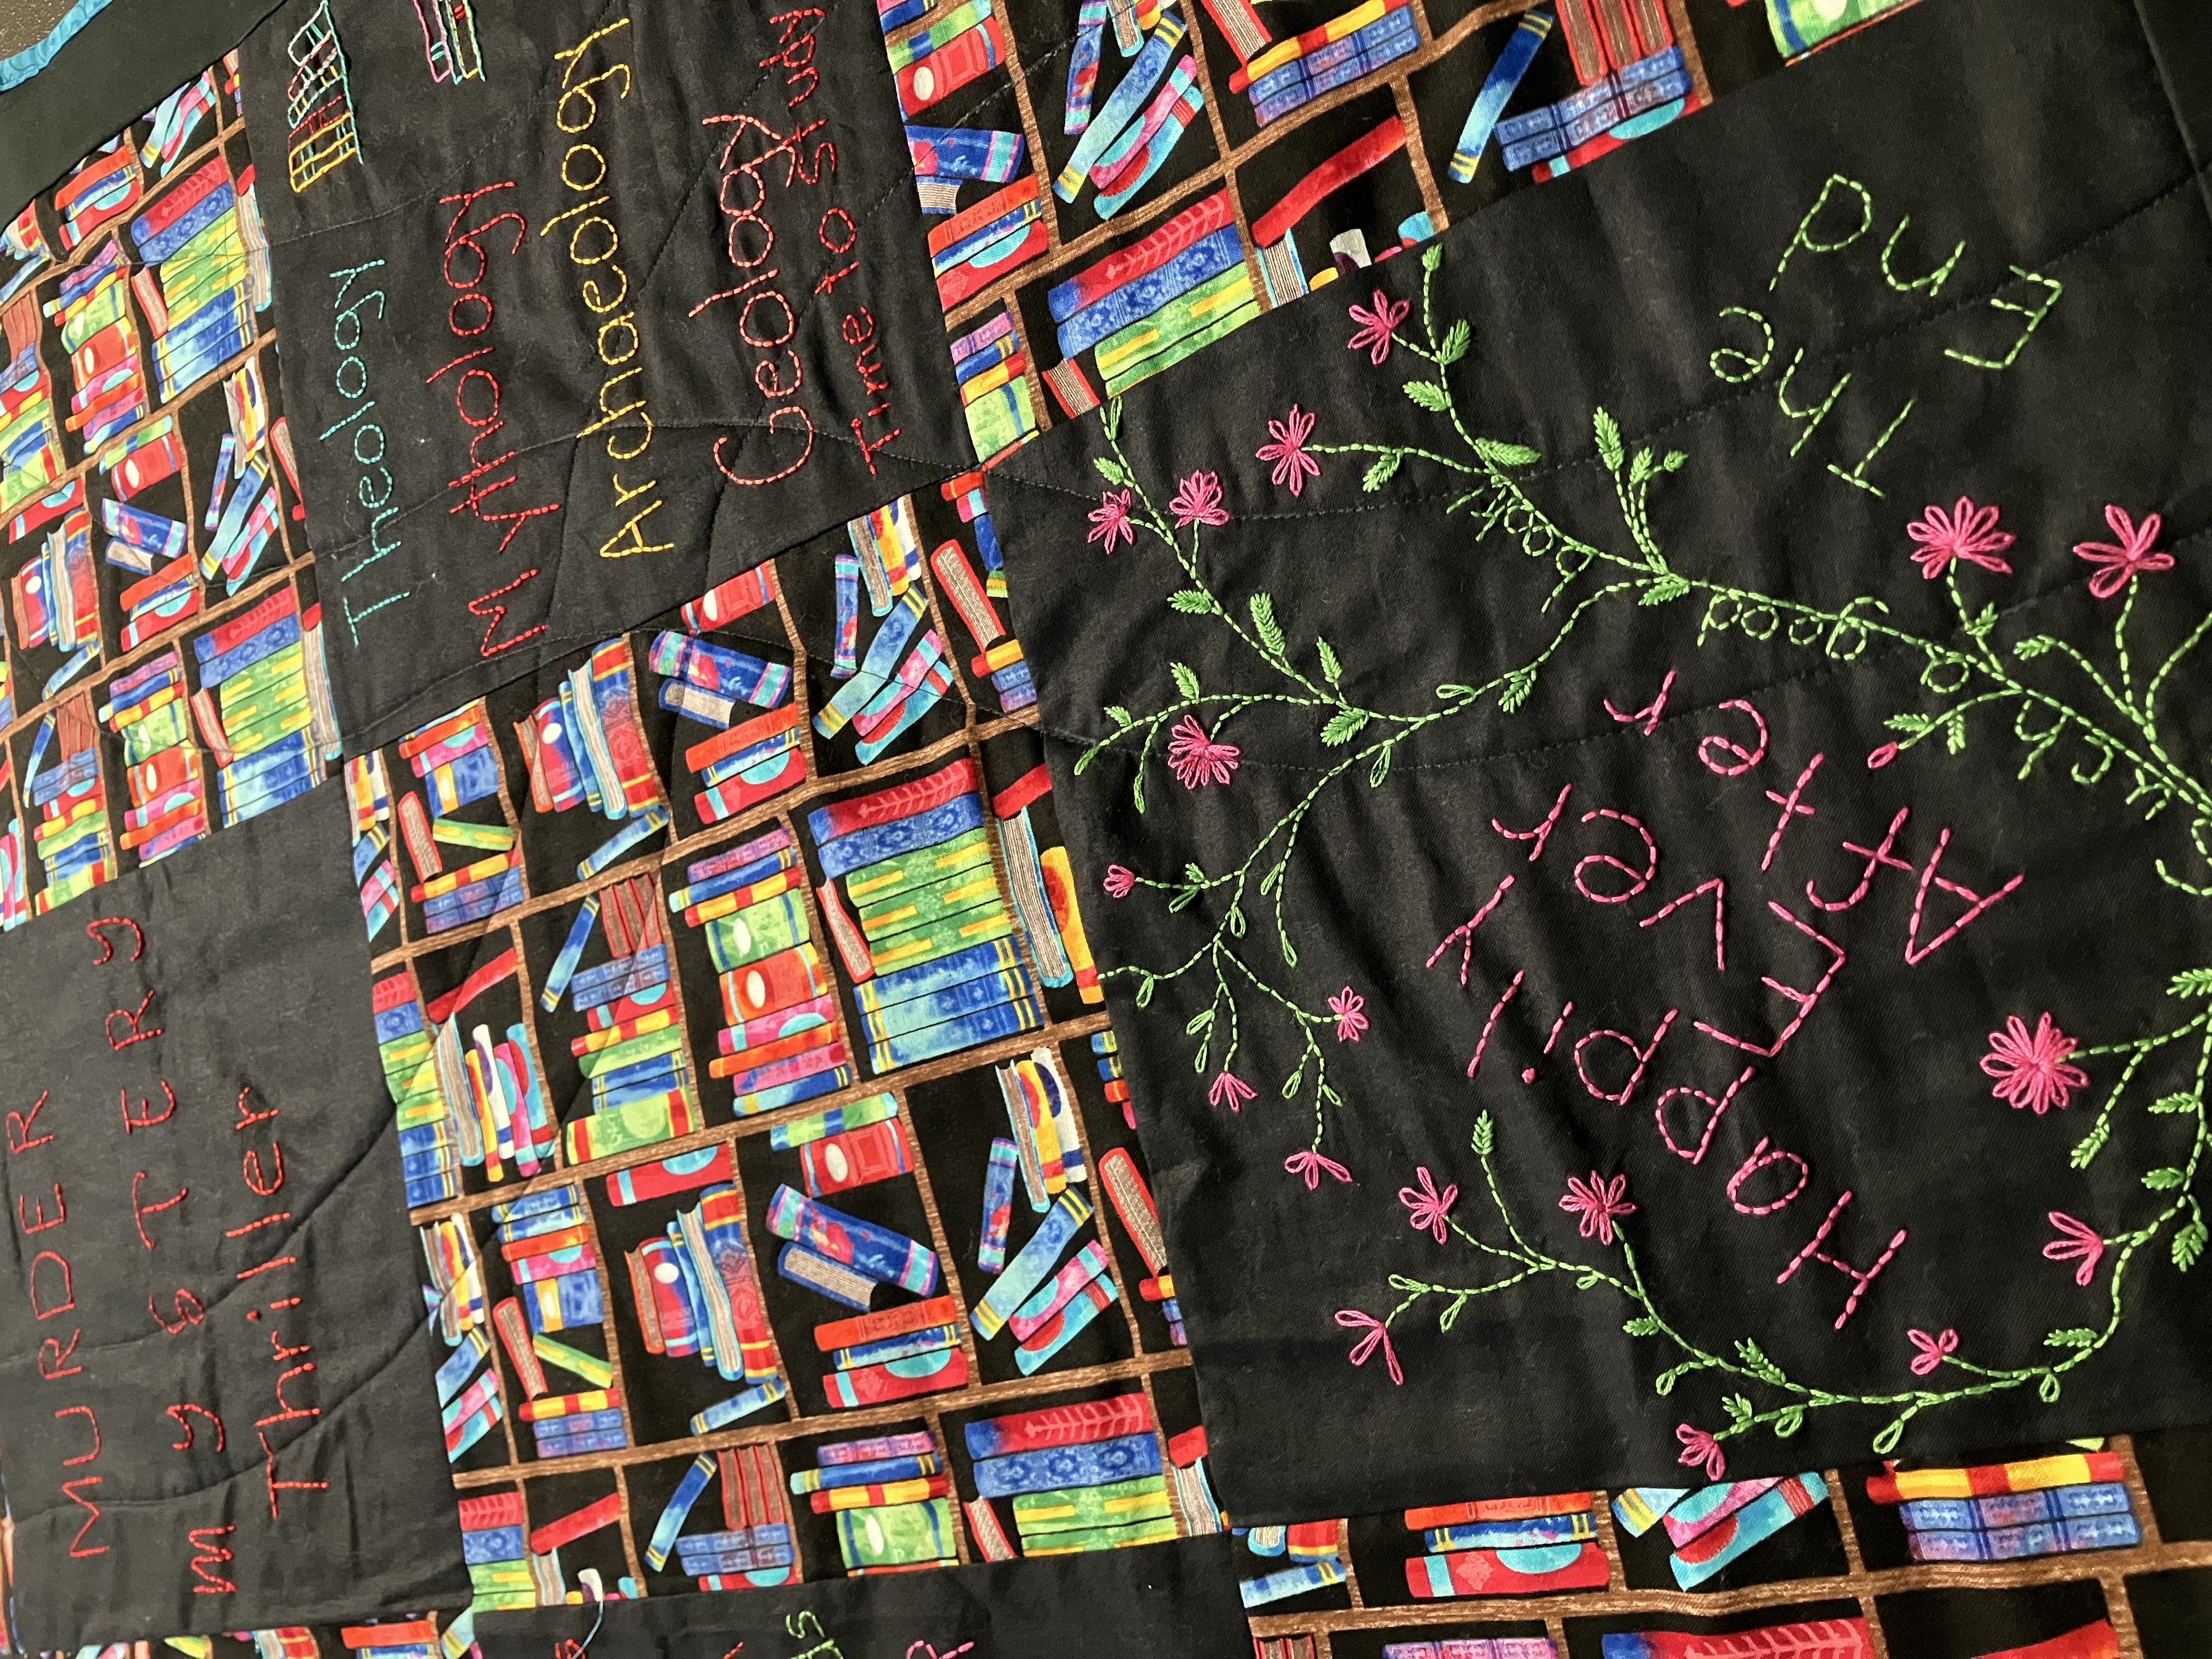 MURDER
mySTERy
Thriller
Theology
Mythology
Archaeology
Geology
Time to study
Happily
Ever
After
a good book
The
End